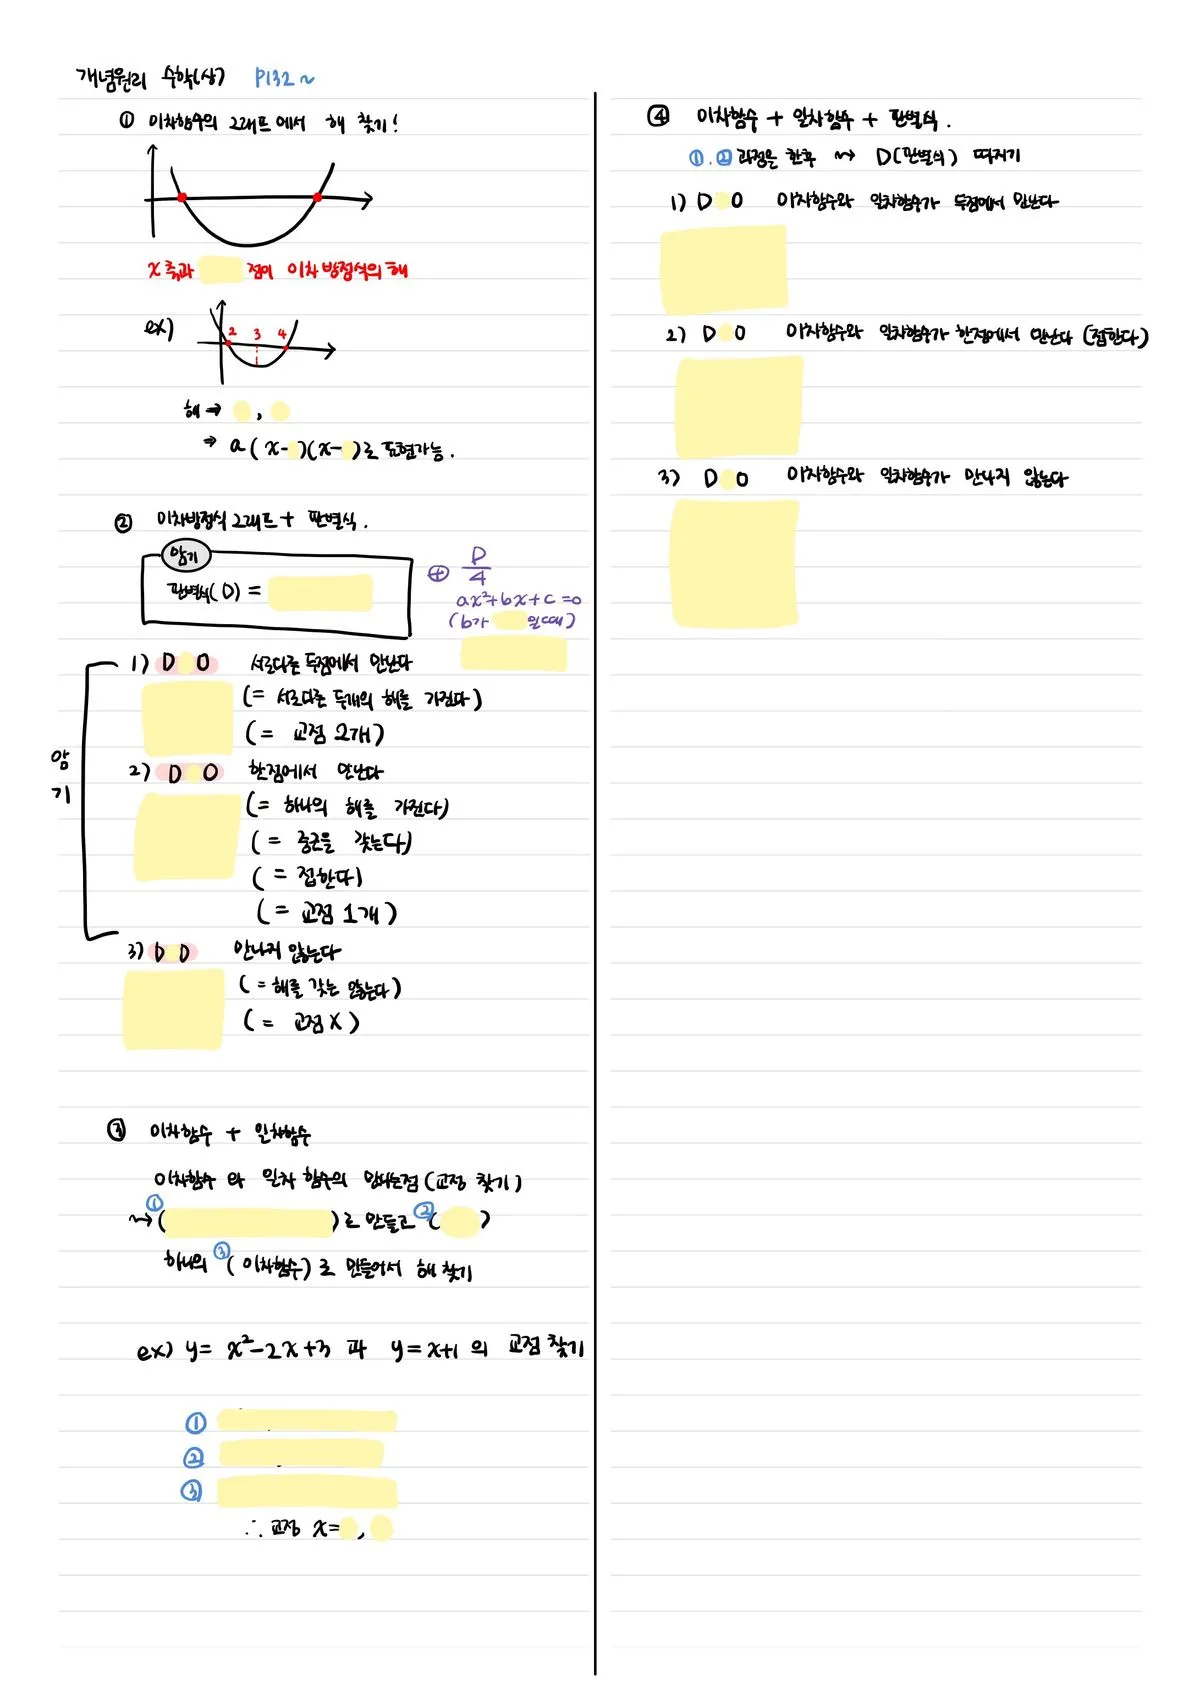 개념원리 수학(상) P132~
① 이차함수의 그래프에서 해 찾기!
x축과 점이 이차방정식의 해
ex) 2 3 4
해 → ,
→ a(x- )(x- )로 표현가능.
② 이차방정식 그래프 + 판별식.
암기
판별식(D) =
⊕ D/4
ax²+bx+c=0
(b가 일때)
암기
1) D 0 서로다른 두점에서 만난다
(= 서로다른 두개의 해를 가진다)
(= 교점 2개)
2) D 0 한점에서 만난다
(= 하나의 해를 가진다)
(= 중근을 갖는다)
(= 접한다)
(= 교점 1개)
3) D 0 만나지 않는다
(= 해를 갖는 않는다)
(= 교점 X)
③ 이차함수 + 일차함수
이차함수 와 일차 함수의 만나는점 (교점 찾기)
↝ ①( )로 만들고 ②( )
하나의 ③(이차함수)로 만들어서 해 찾기
ex) y= x²-2x+3 과 y=x+1 의 교점 찾기
①
②
③
∴ 교점 x= ,
④ 이차함수 + 일차함수 + 판별식.
①.② 과정을 한후 ↝ D(판별식) 따지기
1) D 0 이차함수와 일차함수가 두점에서 만난다
2) D 0 이차함수와 일차함수가 한점에서 만난다 (접한다)
3) D 0 이차함수와 일차함수가 만나지 않는다